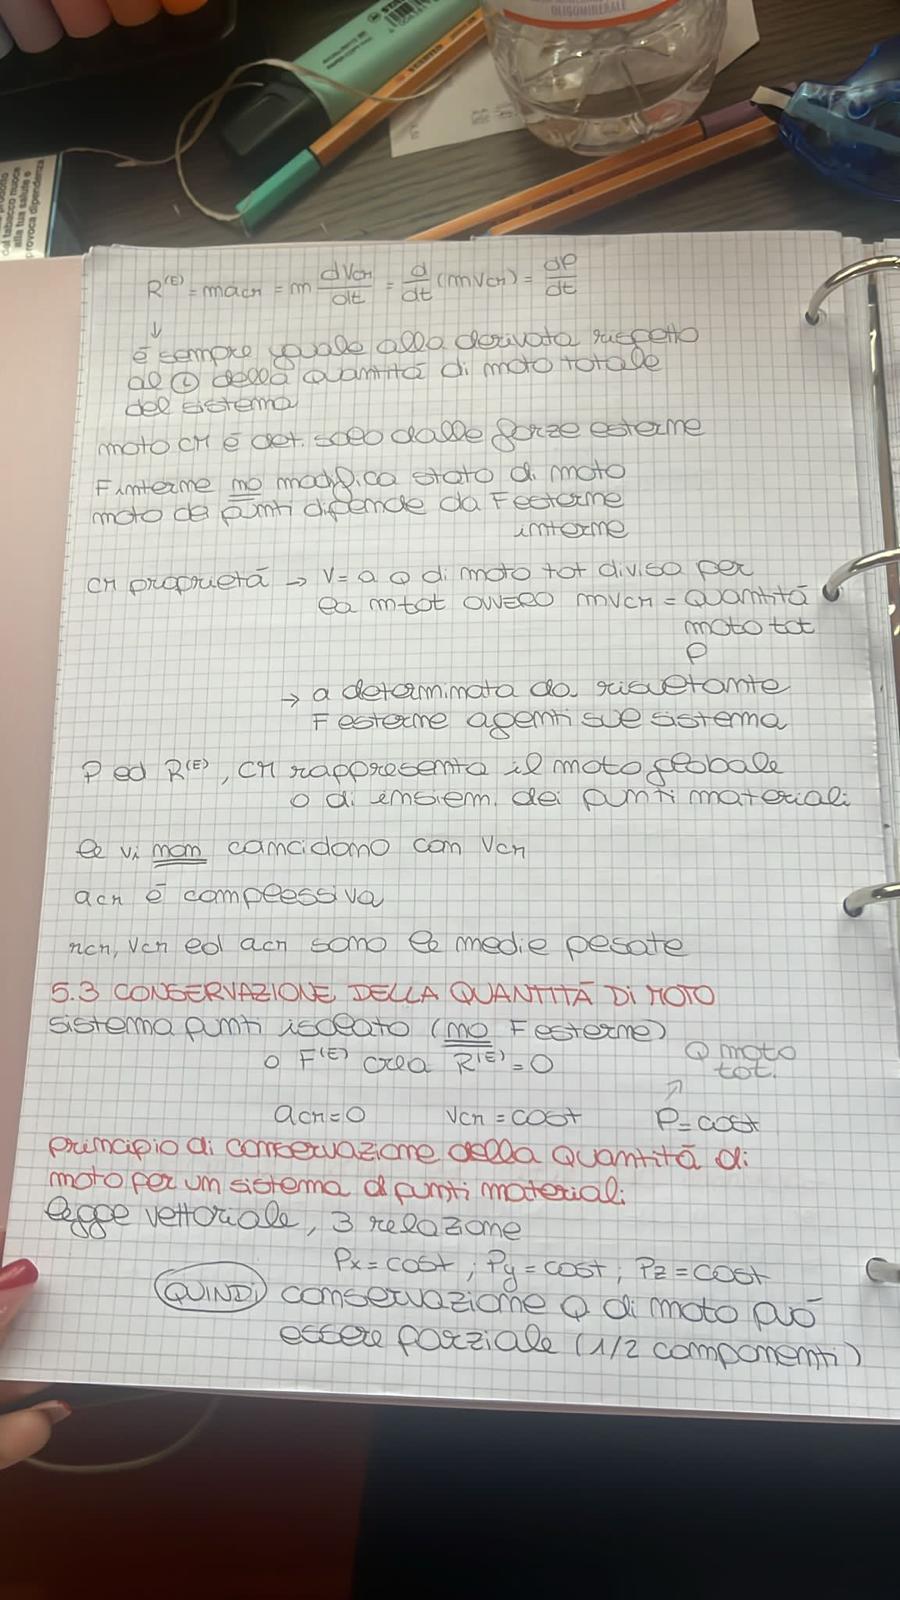 OLIGOMINERALE
alla tua salute e
provoca dipendenza
R⁽ᴱ⁾ = macm = m dvcm/dt = d/dt (mvcm) = dP/dt
↓
è sempre uguale alla derivata rispetto
al (t) della quantità di moto totale
del sistema
moto CM è det. solo dalle forze esterne
F interne no modifica stato di moto
moto dei punti dipende da F esterne
interne
CM proprietà → v = a Q di moto tot diviso per
la mtot OVVERO mvcm = quantità
moto tot
P
→ a determinata da risultante
F esterne agenti sul sistema
P ed R⁽ᴱ⁾, CM rappresenta il moto globale
o di insiem. dei punti materiali
le vi non coincidono con vcm
acm è complessiva
rcm, vcm ed acm sono le medie pesate
5.3 CONSERVAZIONE DELLA QUANTITÀ DI MOTO
sistema punti isolato (no F esterne)
o F⁽ᴱ⁾ crea R⁽ᴱ⁾ = 0
Q moto
tot.
acm = 0 vcm = cost P = cost
principio di conservazione della quantità di
moto per un sistema di punti materiali
legge vettoriale, 3 relazione
Px = cost ; Py = cost ; Pz = cost
QUINDI conservazione Q di moto può
essere parziale (1/2 componenti)